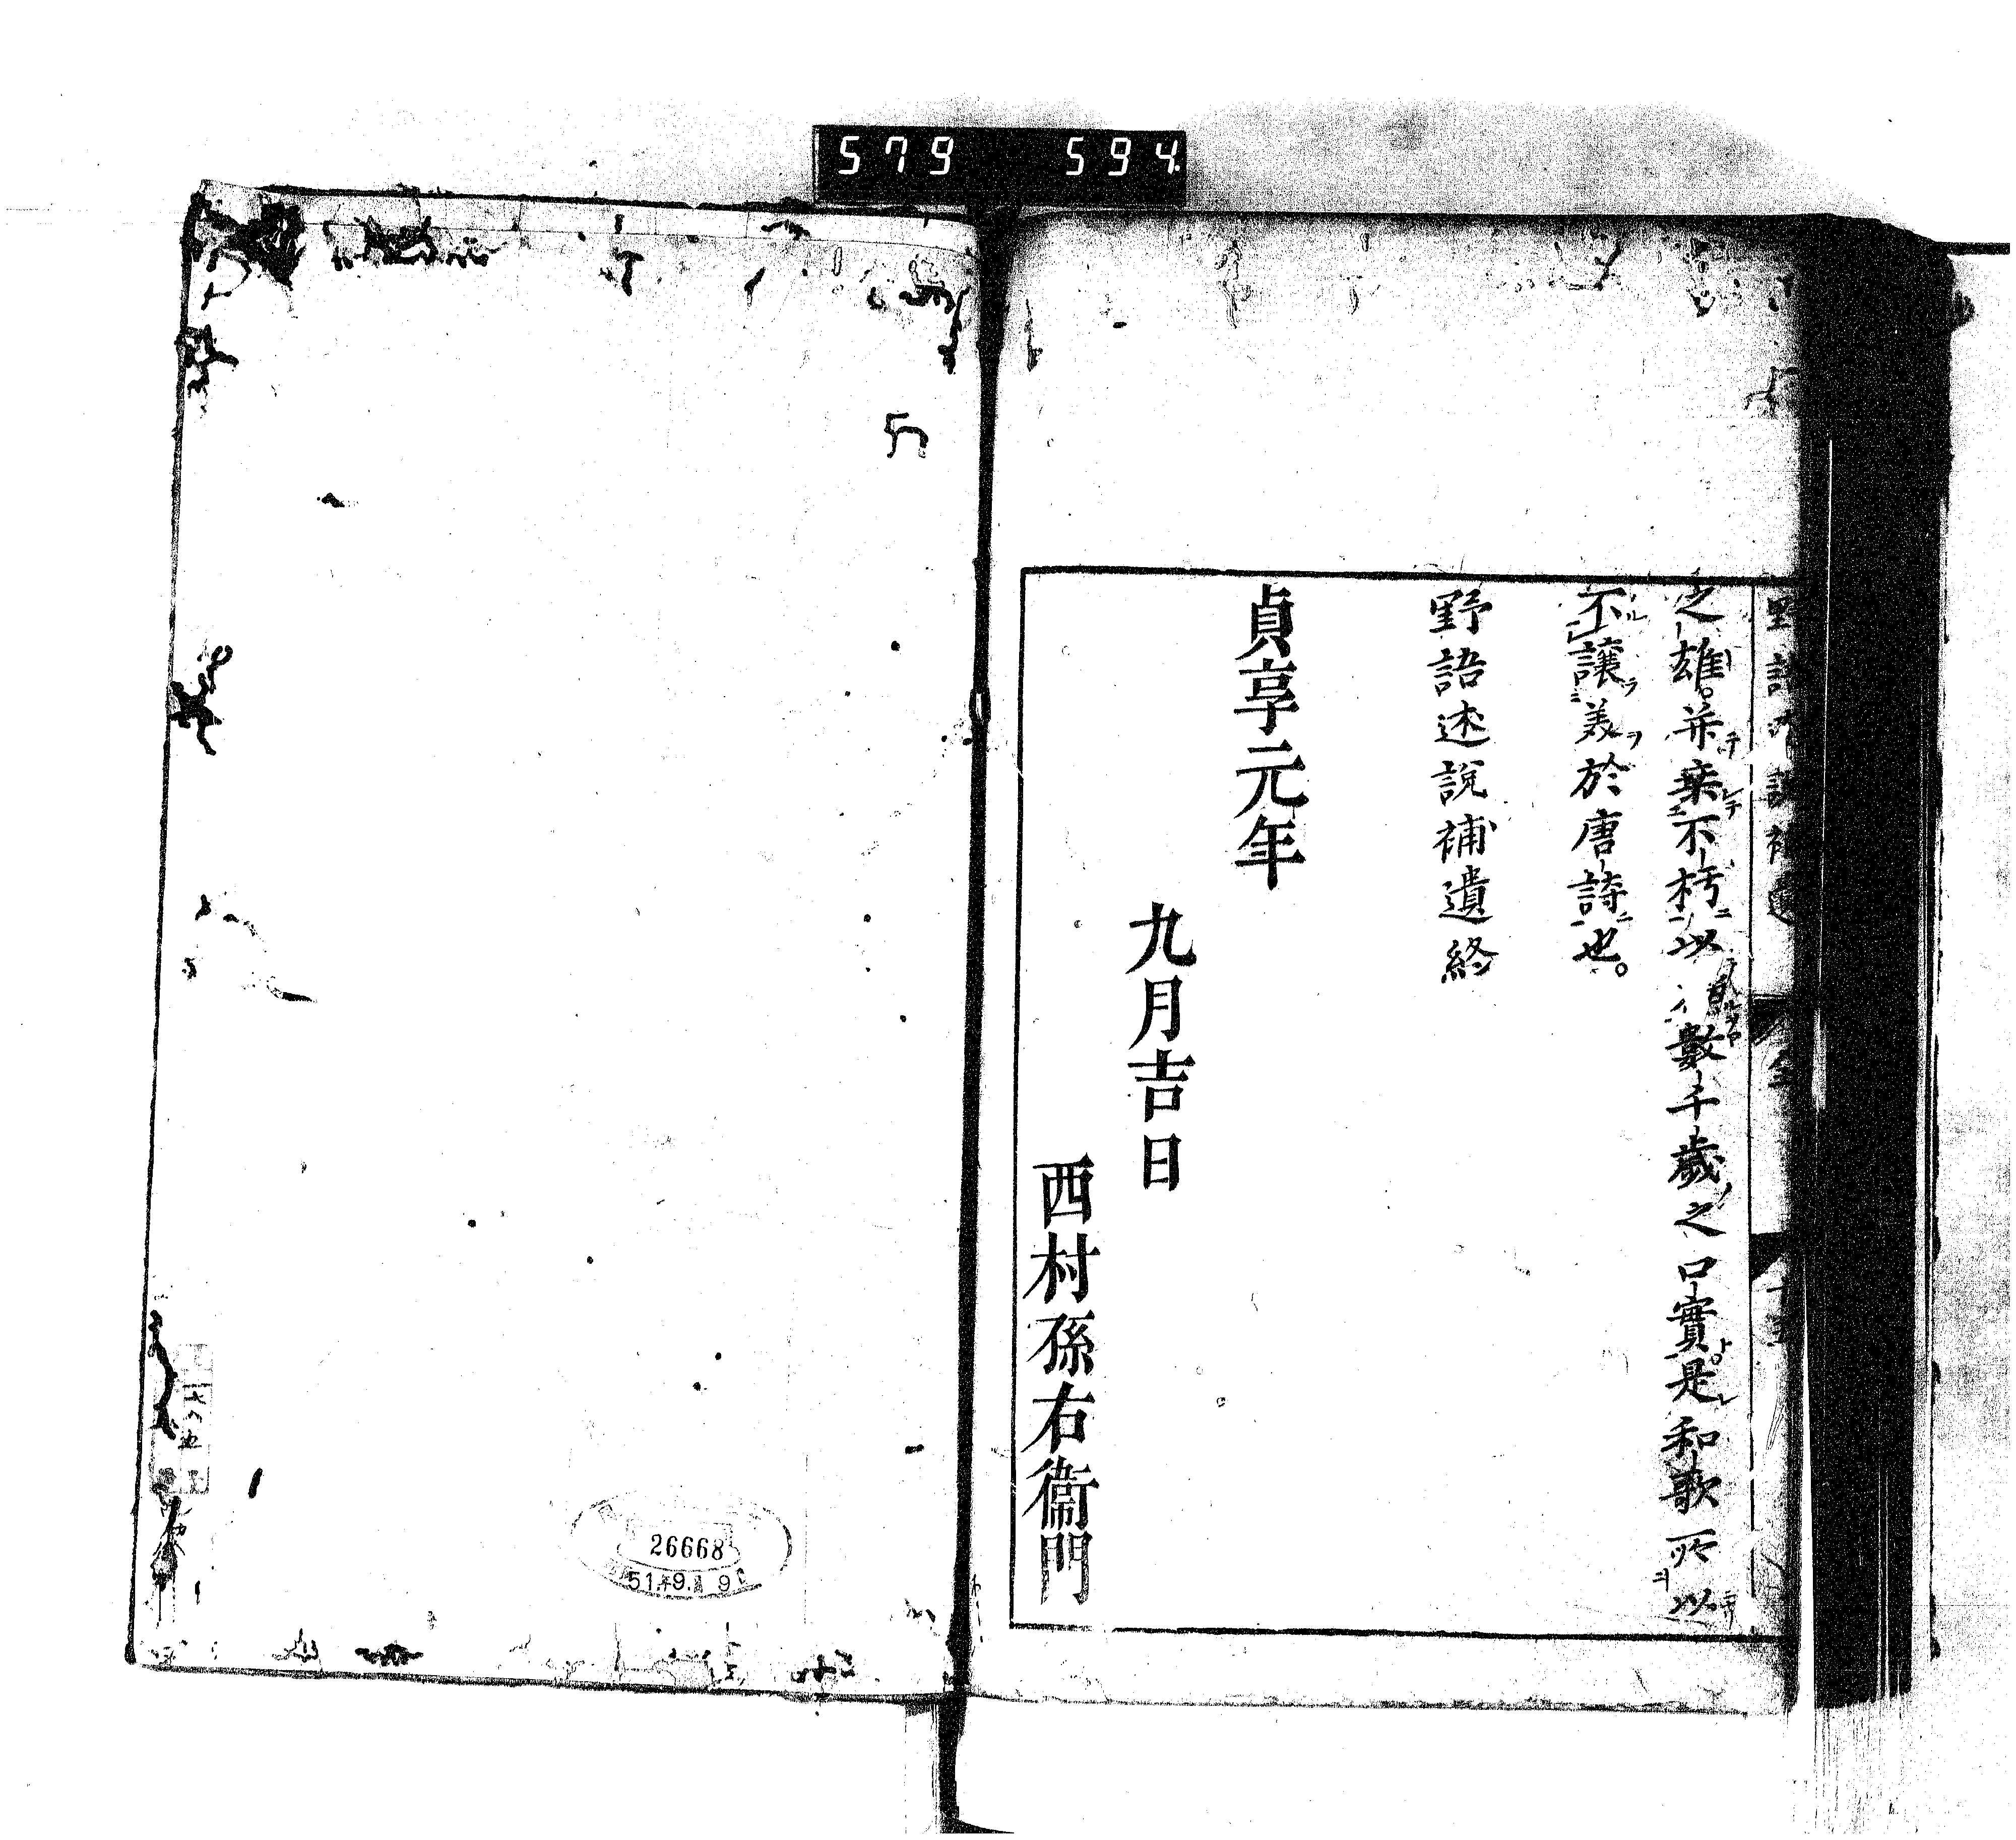 579 594
之雄。并乗不朽以 數千歲之口實是和歌所以
不讓美於唐詩也。
野語述說補遺終
貞享元年
九月吉日
西村孫右衞門
26668
51.9.9